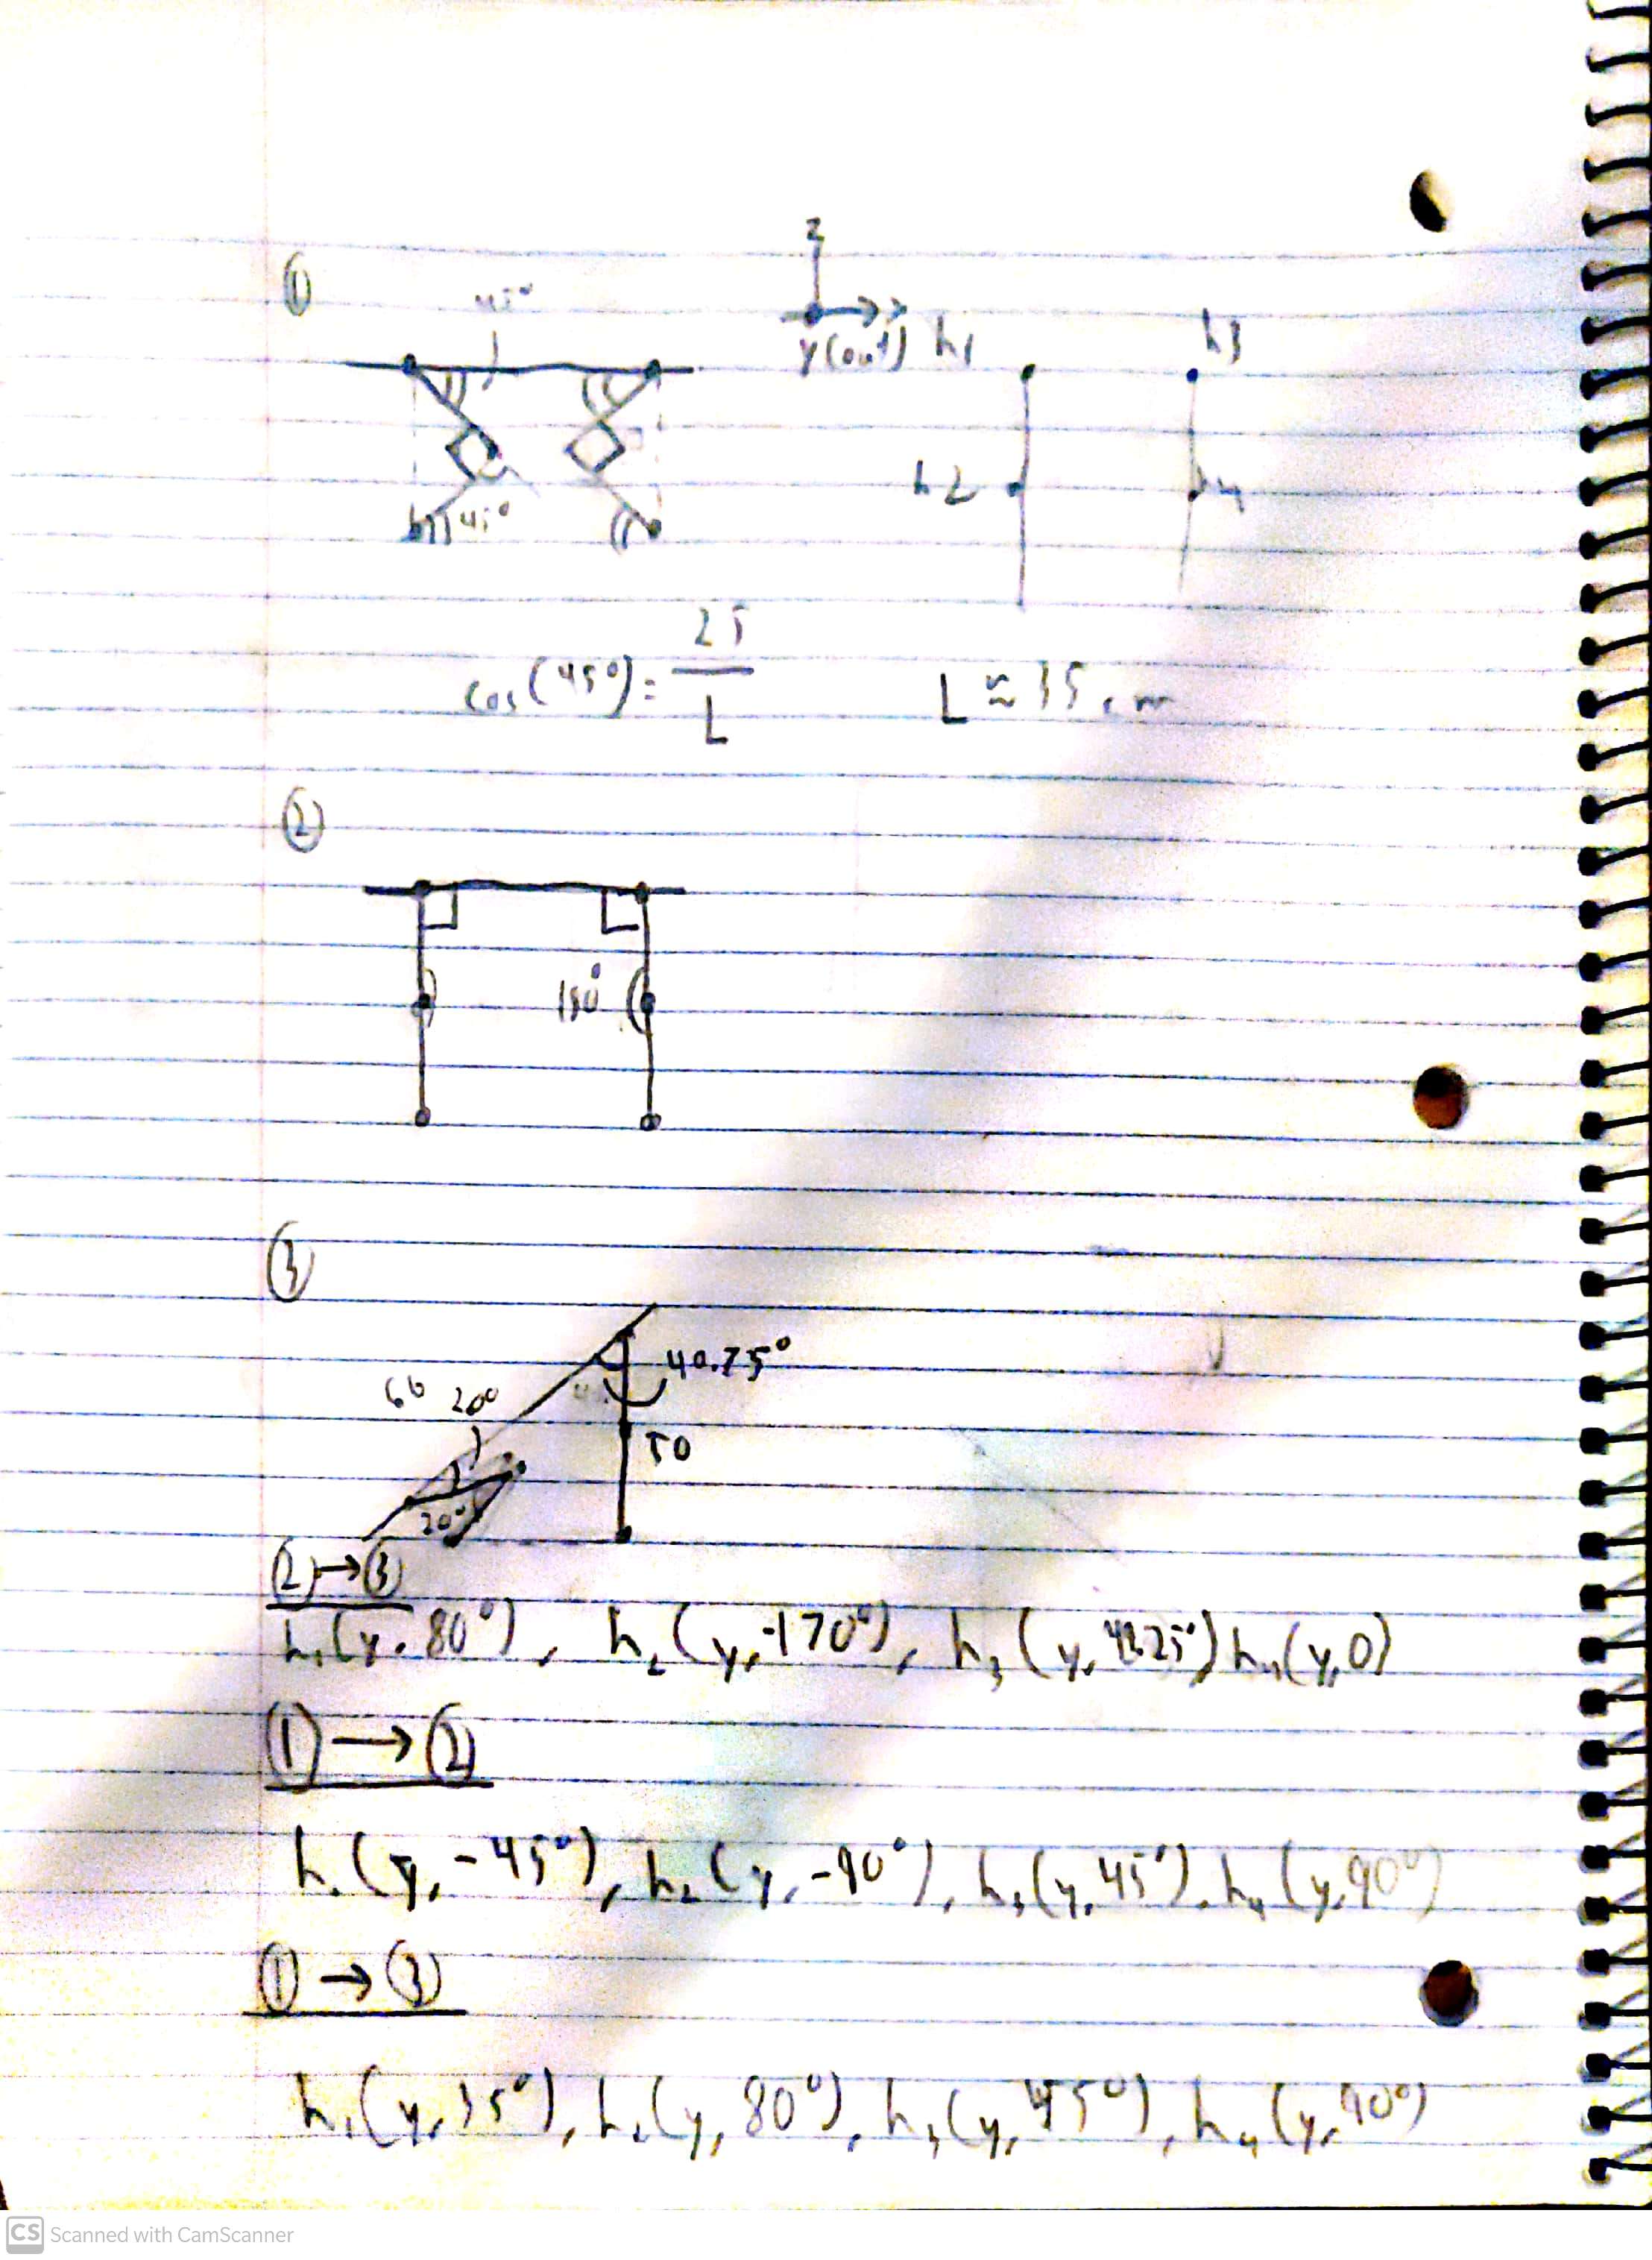 ①
45°
z
y(out)
h1
h3
h2
45°
cos(45°) = 25/L
L ≈ 35 cm
②
180°
③
40.75°
66
20°
50
20°
② → ③
h₁(y, 80°), h₂(y, -170°), h₃(y, h₄(y, 0)
① → ②
h₁(y, -45°), h₂(y, -90°), h₃(y, 45°), h₄(y, 90°)
① → ③
h₁(y, 35°), h₂(y, 80°), h₃(y, 45°), h₄(y, 90°)
CS Scanned with CamScanner